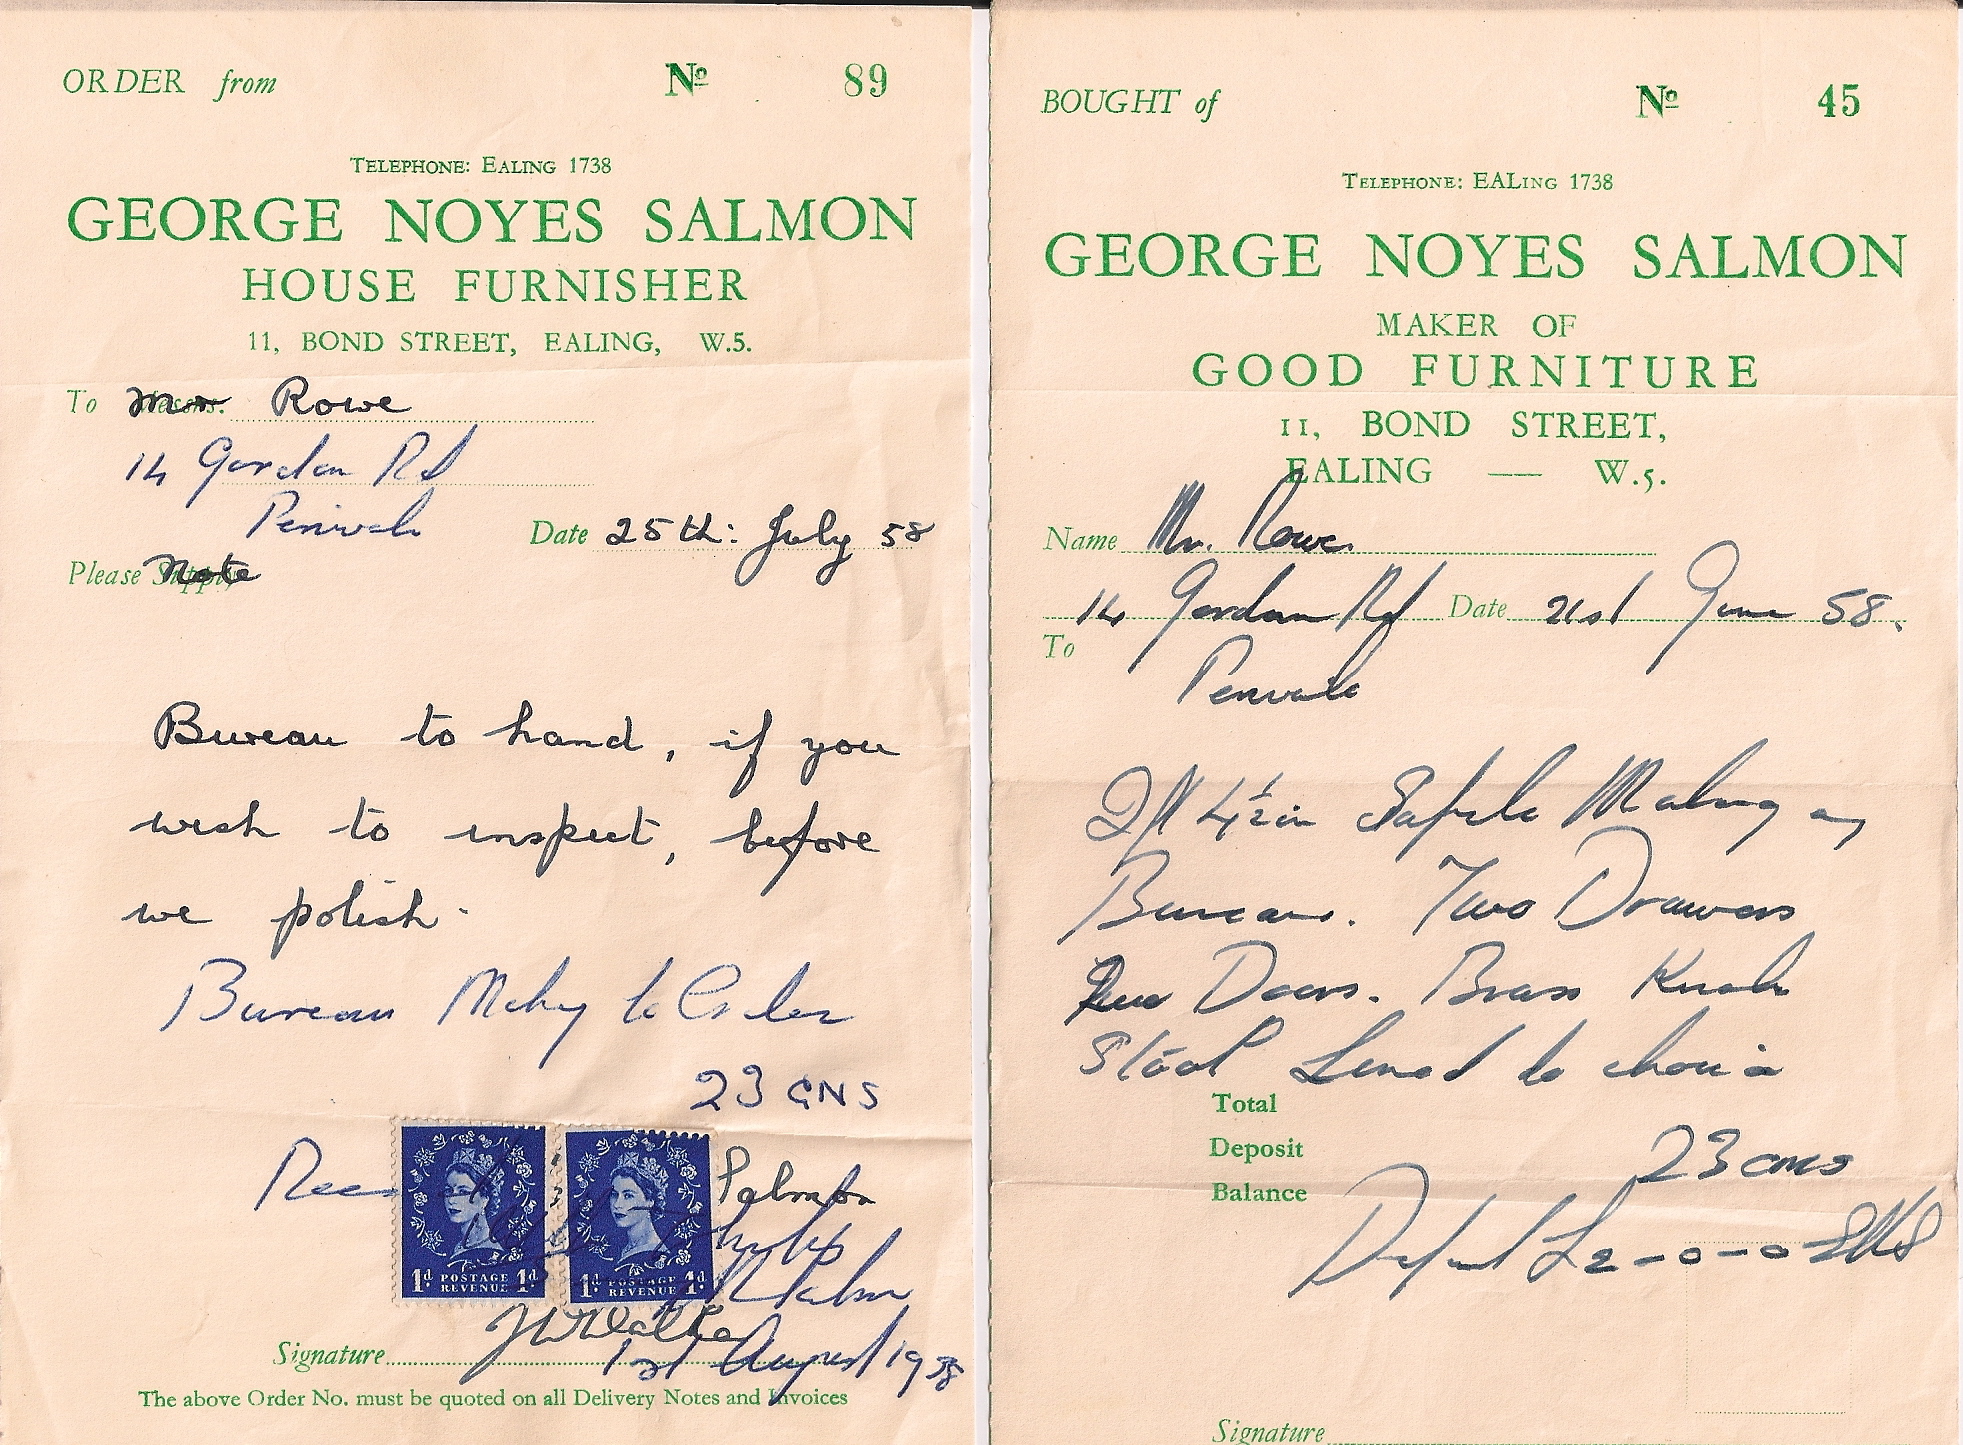 ORDER from Nº 89
TELEPHONE: EALING 1738
GEORGE NOYES SALMON
HOUSE FURNISHER
11, BOND STREET, EALING, W.5.
To Mr Rowe
14 Gordon Rd
Perivale
Date 25th: July 58
Please Note
Bureau to hand, if you
wish to inspect, before
we polish.
Bureau Mahy to Order
23 GNS
Salmon
1d POSTAGE REVENUE 1d
1d POSTAGE REVENUE 1d
Signature
1st August 1958
The above Order No. must be quoted on all Delivery Notes and Invoices
BOUGHT of Nº 45
TELEPHONE: EALING 1738
GEORGE NOYES SALMON
MAKER OF
GOOD FURNITURE
11, BOND STREET,
EALING — W.5.
Name Mr. Rowe.
14 Gordon Rd Date 21st June 58.
To
Perivale
2ft 4½in Sapele Mahogany
Bureau. Two Drawers
Two Doors. Brass Knobs
Stool Lined to choice
Total
Deposit 23 GNS
Balance
Deposit £2-0-0
Signature